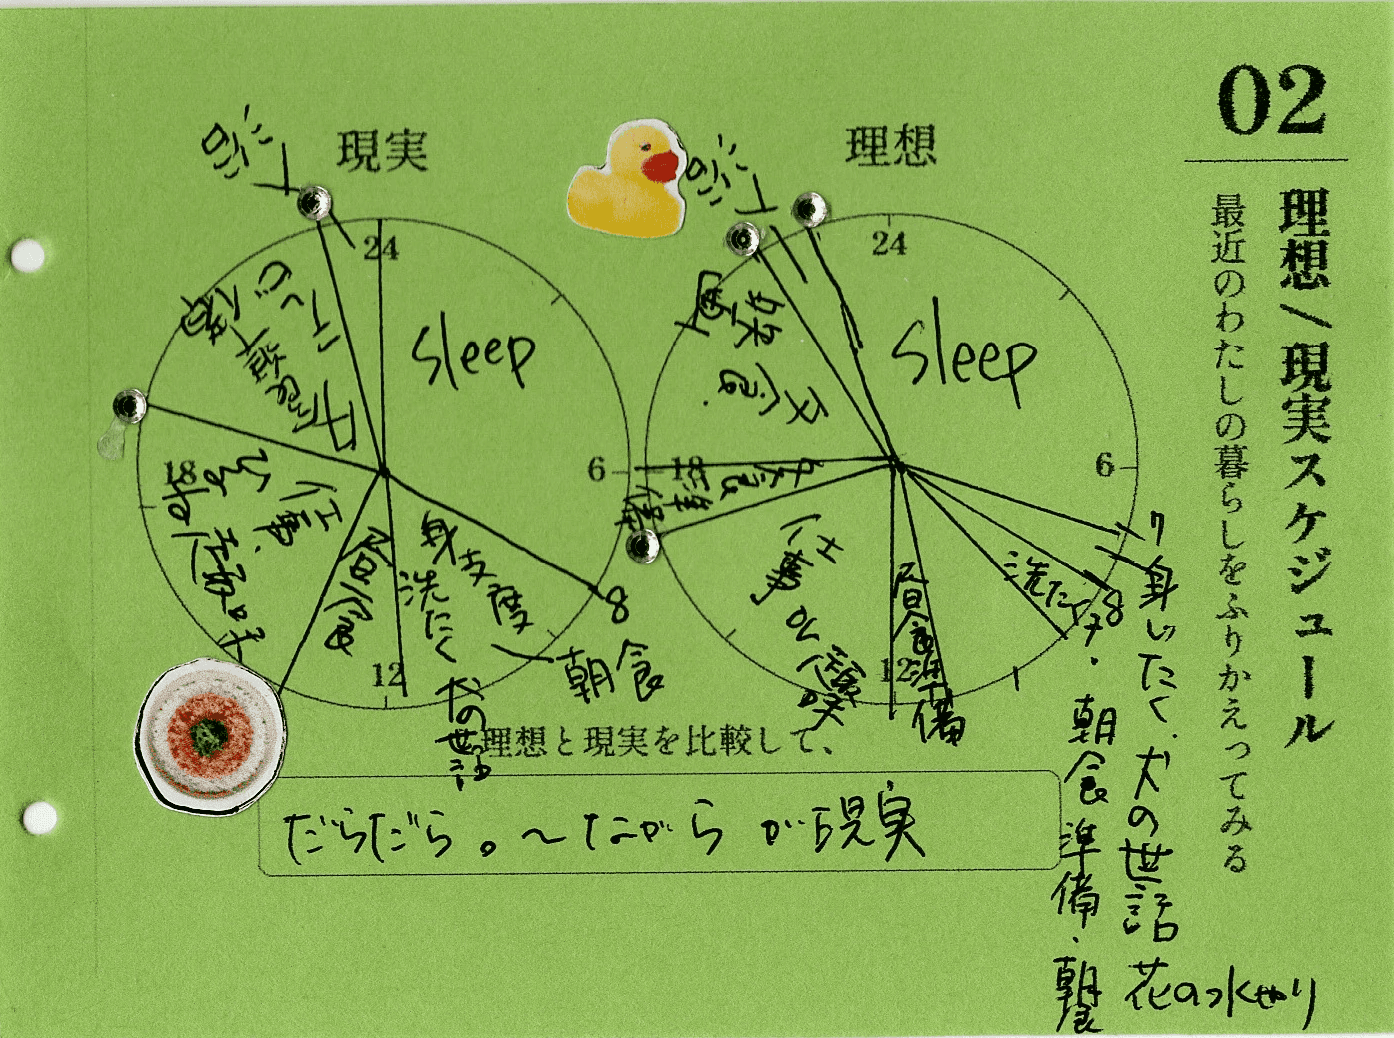 02
理想/現実スケジュール
最近のわたしの暮らしをふりかえってみる
理想
24
6
12
18
sleep
7
身じたく、犬の世話
花の水やり
8
洗たく
朝食準備・朝食
昼食準備
仕事or趣味
夕食準備
夕食
風呂
現実
24
6
12
18
sleep
8
朝食
身支度
洗たく
犬の世話
昼食
仕事
ひるね
趣味
夕食準備
理想と現実を比較して、
だらだら。〜ながらが現実